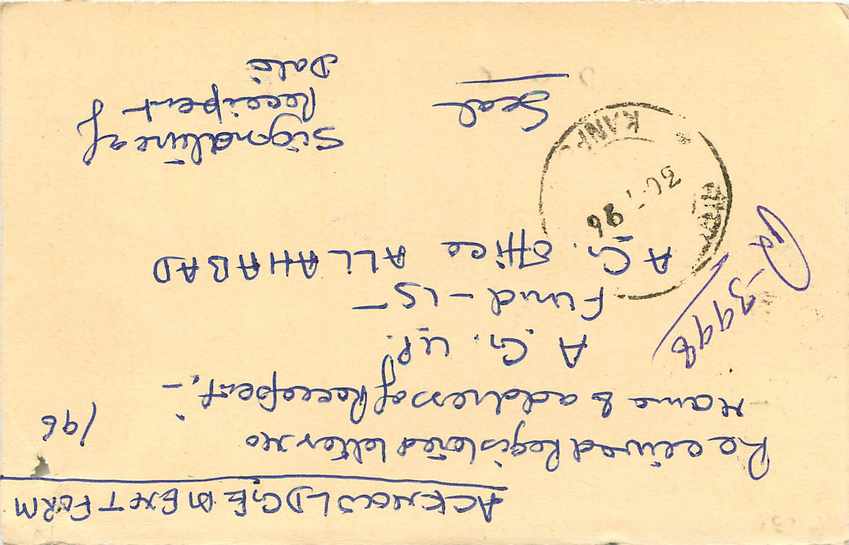 ACKNOWLDGEMENT FORM
Received Registered letter no
/96
Name & address of Receepent. -
A.G. U.P.
Fund - 15
A.G. Office ALLAHABAD
Rd-3998
Seal
Signature of
Receipent
Date
KANP
20 96